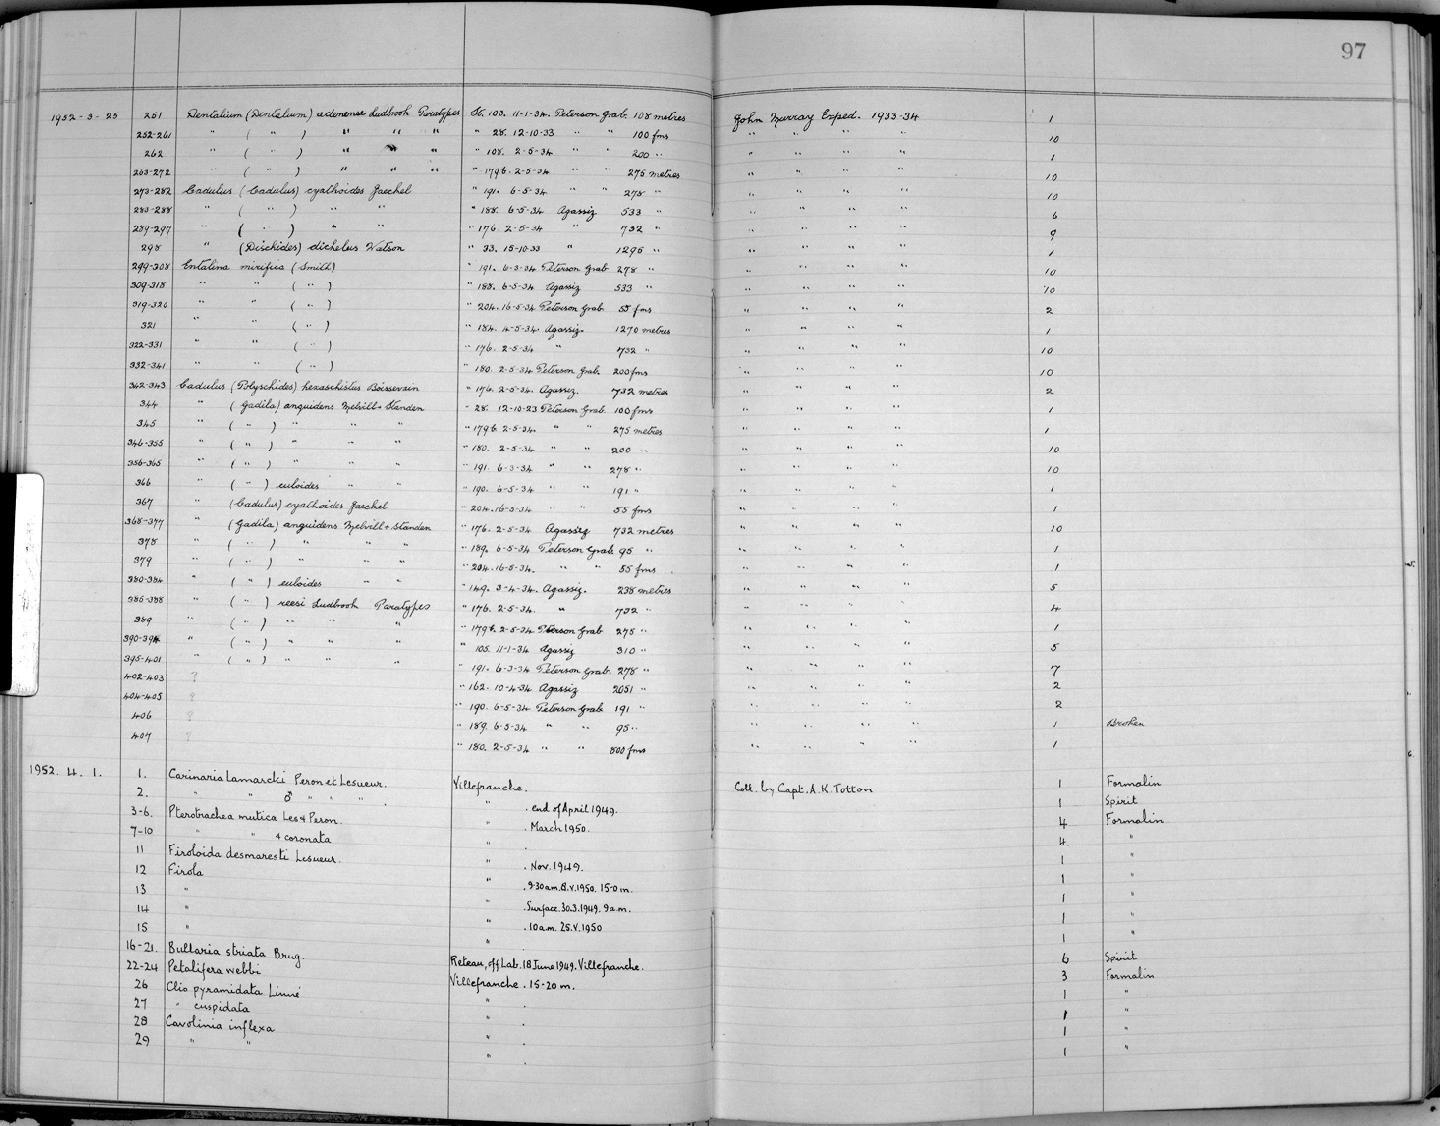 97
1952-3-25 251 Dentalium (Dentalium) Ludbrook Paratypes St. 103. 11-1-34. Peterson Grab. 108 metres John Murray Exped. 1933-34 1
252-261 " ( " ) " " " " 28. 12-10-33 " " 100 fms " " " " 10
262 " ( " ) " " " " 108. 2-5-34 " " 200 " " " " " 1
263-272 " ( " ) " " " " 179b. 2-5-34 " " 275 metres " " " " 10
273-282 Cadulus (Cadulus) cyathoides Jaeckel " 191. 6-5-34 " " 278 " " " " " 10
283-288 " ( " ) " " " 188. 6-5-34 Agassiz 533 " " " " " 6
289-297 " ( " ) " " " 176. 2-5-34 " 732 " " " " " 9
298 " (Dischides) dichelus Watson " 33. 15-10-33 " 1295 " " " " " 1
299-308 Entalina mirifica (Smith) " 191. 6-3-34 Peterson Grab 278 " " " " " 10
309-318 " " ( " ) " 188. 6-5-34 Agassiz 533 " " " " " 10
319-320 " " ( " ) " 204. 16-5-34 Peterson Grab. 55 fms " " " " 2
321 " " ( " ) " 184. 4-5-34. Agassiz. 1270 metres " " " " 1
322-331 " " ( " ) " 176. 2-5-34 " 732 " " " " " 10
332-341 " " ( " ) " 180. 2-5-34 Peterson Grab. 200 fms " " " " 10
342-343 Cadulus (Polyschides) hexaschistus Boissevain " 176. 2-5-34. Agassiz. 732 metres " " " " 2
344 " (Gadila) anguidens Melvill + Standen " 28. 12-10-23 Peterson Grab. 100 fms " " " " 1
345 " ( " ) " " " " 179b. 2-5-34. " " 275 metres " " " " 1
346-355 " ( " ) " " " " 180. 2-5-34 " " 200 " " " " " 10
356-365 " ( " ) " " " " 191. 6-3-34 " " 278 " " " " " 10
366 " ( " ) euloides " " " 190. 6-5-34 " " 191 " " " " " 1
367 " (Cadulus) cyathoides Jaeckel " 204. 16-5-34 " " 55 fms " " " " 1
368-377 " (Gadila) anguidens Melvill + Standen " 176. 2-5-34 Agassiz 732 metres " " " " 10
378 " ( " ) " " " " 189. 6-5-34 Peterson Grab 95 " " " " " 1
379 " ( " ) " " " " 204. 16-5-34. " " 55 fms " " " " 1
380-384 " ( " ) euloides " " " 149. 3-4-34. Agassiz. 238 metres " " " " 5
385-388 " ( " ) reesi Ludbrook Paratypes " 176. 2-5-34. " 732 " " " " " 4
389 " ( " ) " " " " 179b. 2-5-34 Peterson Grab 275 " " " " " 1
390-394 " ( " ) " " " " 105. 11-1-34 Agassiz 310 " " " " " 5
395-401 " ( " ) " " " " 191. 6-3-34 Peterson Grab. 278 " " " " " 7
402-403 ? " 162. 10-4-34 Agassiz 2051 " " " " " 2
404-405 ? " 190. 6-5-34 Peterson Grab 191 " " " " " 2
406 ? " 189. 6-5-34 " " 95 " " " " " 1 Broken
407 ? " 180. 2-5-34 " " 800 fms " " " " 1
1952. 4. 1. 1. Carinaria Lamarcki Peron et Lesueur. Villefranche. Coll. by Capt. A. K. Totton 1 Formalin
2. " " ♂ " " " . " . end of April 1949. 1 Spirit
3-6. Pterotrachea mutica Les & Peron. " . March 1950. 4 Formalin
7-10 " " & coronata " . 4 "
11 Firoloida desmaresti Lesueur. " . Nov. 1949. 1 "
12 Firola " . 9-30am. 8.V.1950. 15-0 m. 1 "
13 " " . Surface. 30.3.1949. 9 a.m. 1 "
14 " " . 10 a.m. 25.V.1950 1 "
15 " " . 1 "
16-21. Bullaria striata Brug. Reteau, off Lab. 18 June 1949. Villefranche. 6 Spirit
22-24 Petalifera webbi Villefranche. 15-20 m. 3 Formalin
26 Clio pyramidata Linné " . 1 "
27 " cuspidata " . 1 "
28 Cavolinia inflexa " . 1 "
29 " " " . 1 "